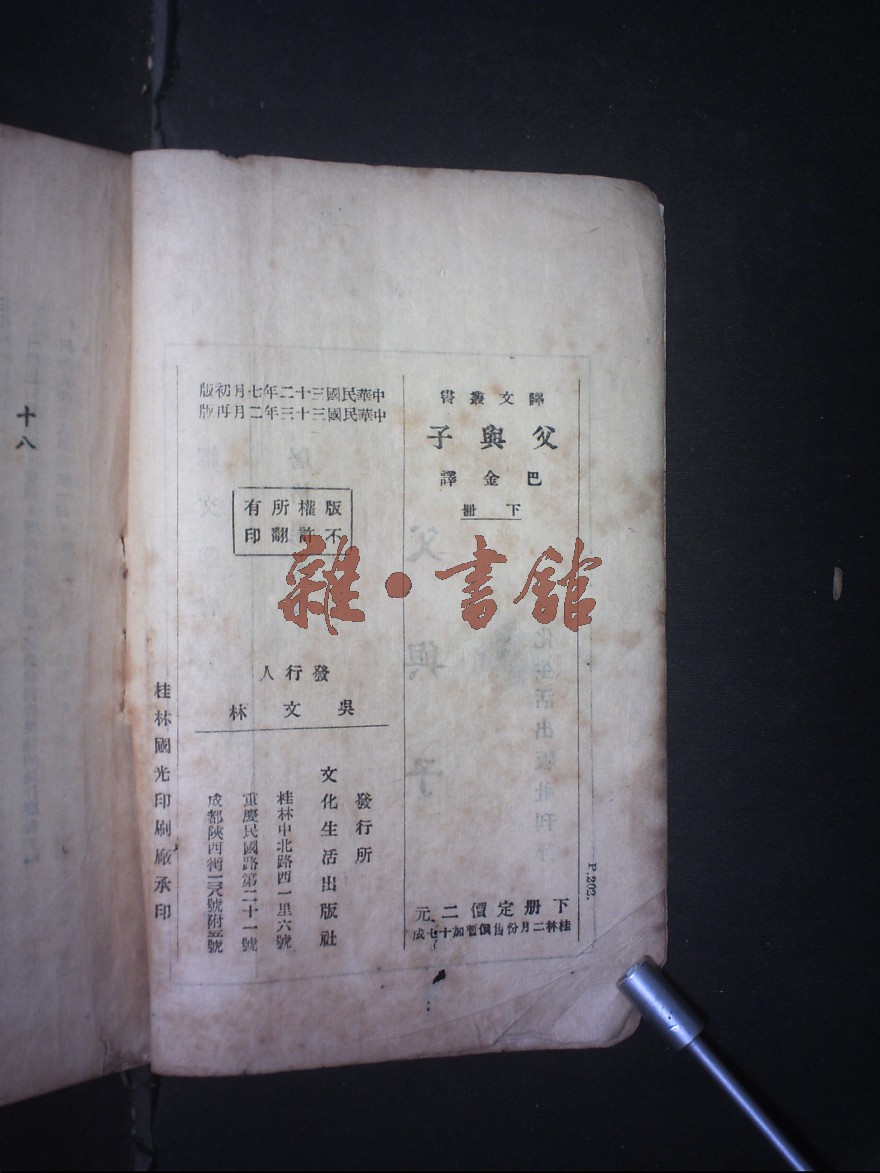 譯文叢書
父與子
巴金譯
下冊
下册定價二元
桂林二月份售價暫加十七成
P.202.
中華民國三十二年七月初版
中華民國三十三年二月再版
版權所有
不許翻印
發行人
吳文林
發行所
文化生活出版社
桂林中北路西一里六號
重慶民國路第二十一號
成都陝西街
桂林國光印刷廠承印
十八
雜·書館